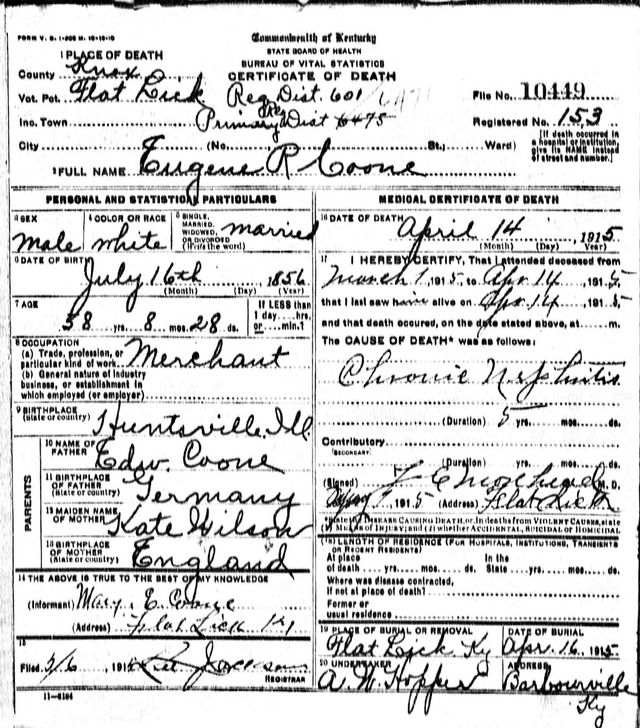 FORM V. S. 1-200 M. 10-10-10
Commonwealth of Kentucky
STATE BOARD OF HEALTH
BUREAU OF VITAL STATISTICS
CERTIFICATE OF DEATH
1 PLACE OF DEATH
County Knox
Vot. Pct. Flat Lick Reg Dist. 601
File No. 10449
Inc. Town
Primary Reg Dist 6475
Registered No. 153
City (No. St., Ward)
[If death occurred in a hospital or institution, give its NAME instead of street and number.]
2 FULL NAME Eugene R Coone
PERSONAL AND STATISTICAL PARTICULARS
3 SEX
Male
4 COLOR OR RACE
White
5 SINGLE, MARRIED, WIDOWED, OR DIVORCED (Write the word)
married
6 DATE OF BIRTH
July 16th 1856
(Month) (Day) (Year)
7 AGE
58 yrs. 8 mos. 28 ds.
If LESS than 1 day....hrs. or....min.?
8 OCCUPATION
(a) Trade, profession, or particular kind of work Merchant
(b) General nature of industry business, or establishment in which employed (or employer)
9 BIRTHPLACE
(State or country) Huntsville, Ill
PARENTS
10 NAME OF FATHER Edw. Coone
11 BIRTHPLACE OF FATHER (State or country) Germany
12 MAIDEN NAME OF MOTHER Kate Wilson
13 BIRTHPLACE OF MOTHER (State or country) England
14 THE ABOVE IS TRUE TO THE BEST OF MY KNOWLEDGE
(Informant) Mary E. Coone
(Address) Flat Lick Ky
15
Filed 5/6 191
REGISTRAR
11-6184
MEDICAL CERTIFICATE OF DEATH
16 DATE OF DEATH
April 14 1915
(Month) (Day) (Year)
17 I HEREBY CERTIFY, That I attended deceased from
March 1 1915, to Apr 14 1915
that I last saw him alive on Apr 14 1915
and that death occured, on the date stated above, at m.
The CAUSE OF DEATH* was as follows:
Chronic Nephritis
(Duration) 5 yrs. mos. ds.
Contributory
(SECONDARY)
(Duration) yrs. mos. ds.
(Signed) M. D.
1915 (Address) Flat Lick
*State the DISEASE CAUSING DEATH, or, in deaths from VIOLENT CAUSES, state (1) MEANS OF INJURY; and (2) whether ACCIDENTAL, SUICIDAL or HOMICIDAL
18 LENGTH OF RESIDENCE (FOR HOSPITALS, INSTITUTIONS, TRANSIENTS OR RECENT RESIDENTS)
At place of death yrs. mos. ds. In the State yrs. mos. ds.
Where was disease contracted,
If not at place of death?
Former or usual residence
19 PLACE OF BURIAL OR REMOVAL
Flat Lick Ky
DATE OF BURIAL
Apr. 16 1915
20 UNDERTAKER
A. W. Hopper
ADDRESS
Barbourville
Ky